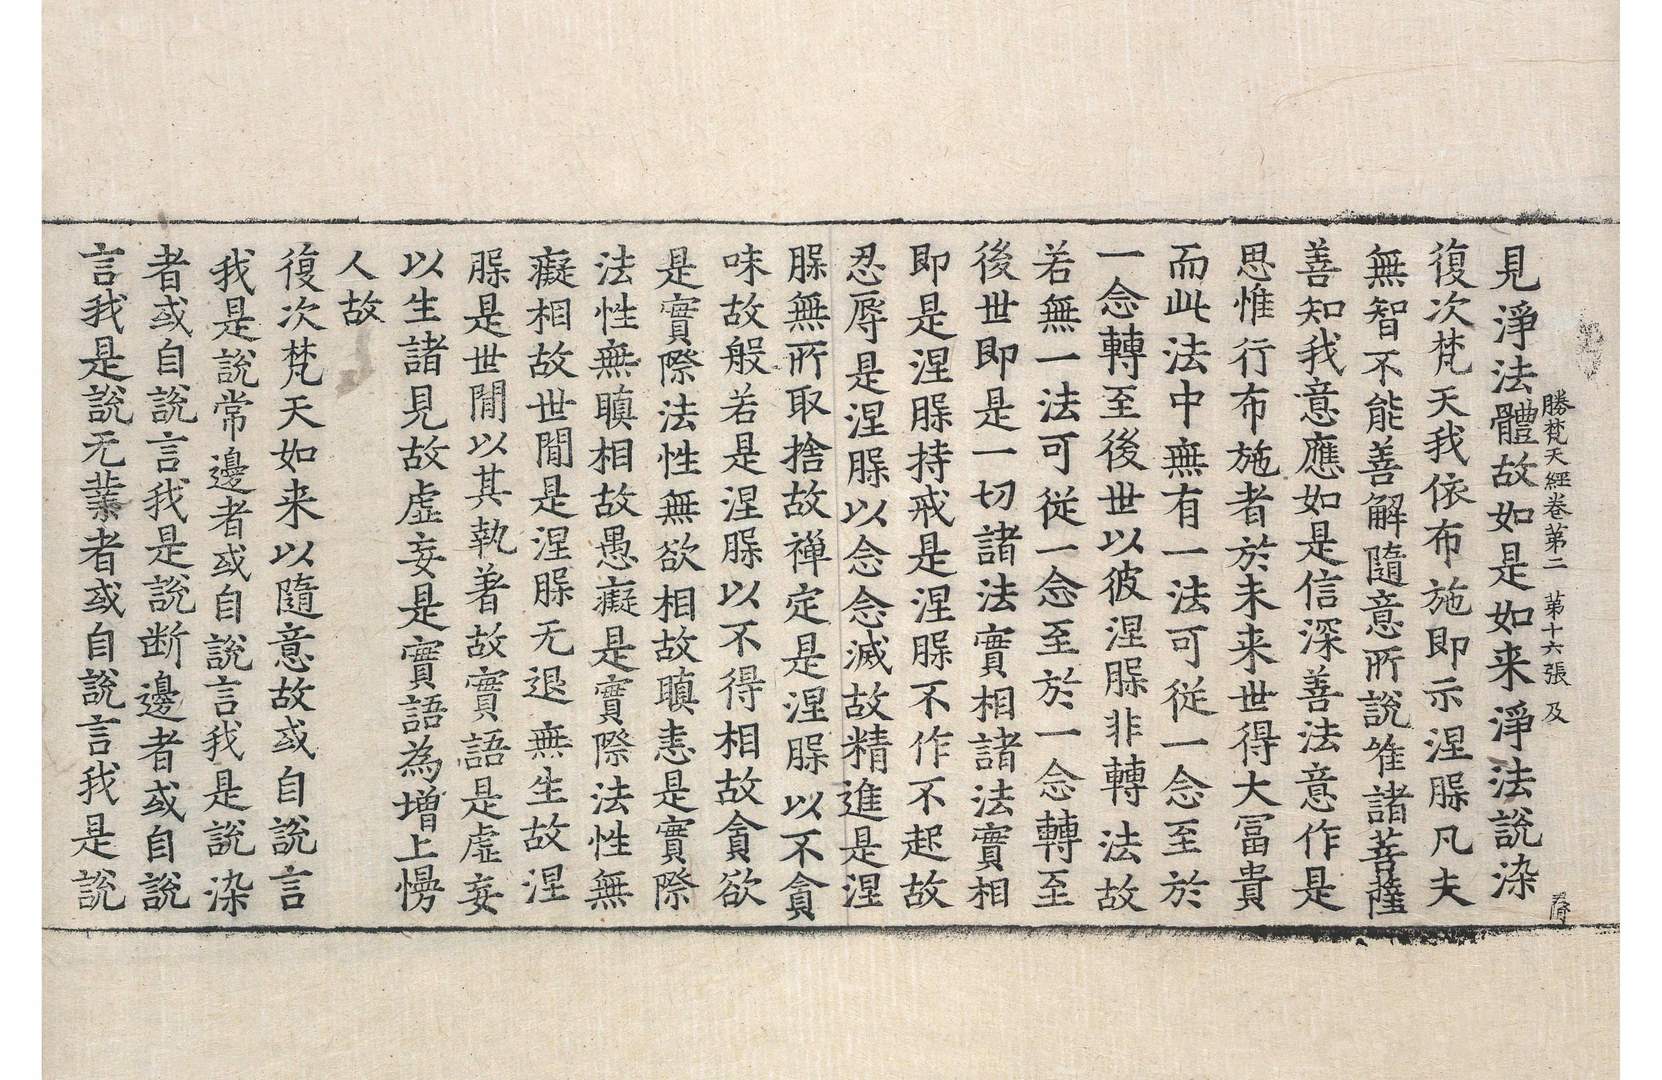 勝梵天經卷第二 第十六張 及
見淨法體故如是如来淨法說染
復次梵天我依布施即示涅槃凡夫
無智不能善解隨意所說唯諸菩薩
善知我意應如是信深善法意作是
思惟行布施者於未来世得大冨貴
而此法中無有一法可従一念至於
一念轉至後世以彼涅槃非轉法故
若無一法可従一念至於一念轉至
後世即是一切諸法實相諸法實相
即是涅槃持戒是涅槃不作不起故
忍辱是涅槃以念念滅故精進是涅
槃無所取捨故禪定是涅槃以不貪
味故般若是涅槃以不得相故貪欲
是實際法性無欲相故瞋恚是實際
法性無瞋相故愚癡是實際法性無
癡相故世間是涅槃无退無生故涅
槃是世間以其執著故實語是虛妄
以生諸見故虛妄是實語為增上慢
人故
復次梵天如来以隨意故或自說言
我是說常邊者或自說言我是說染
者或自說言我是說断邊者或自說
言我是說无業者或自說言我是說